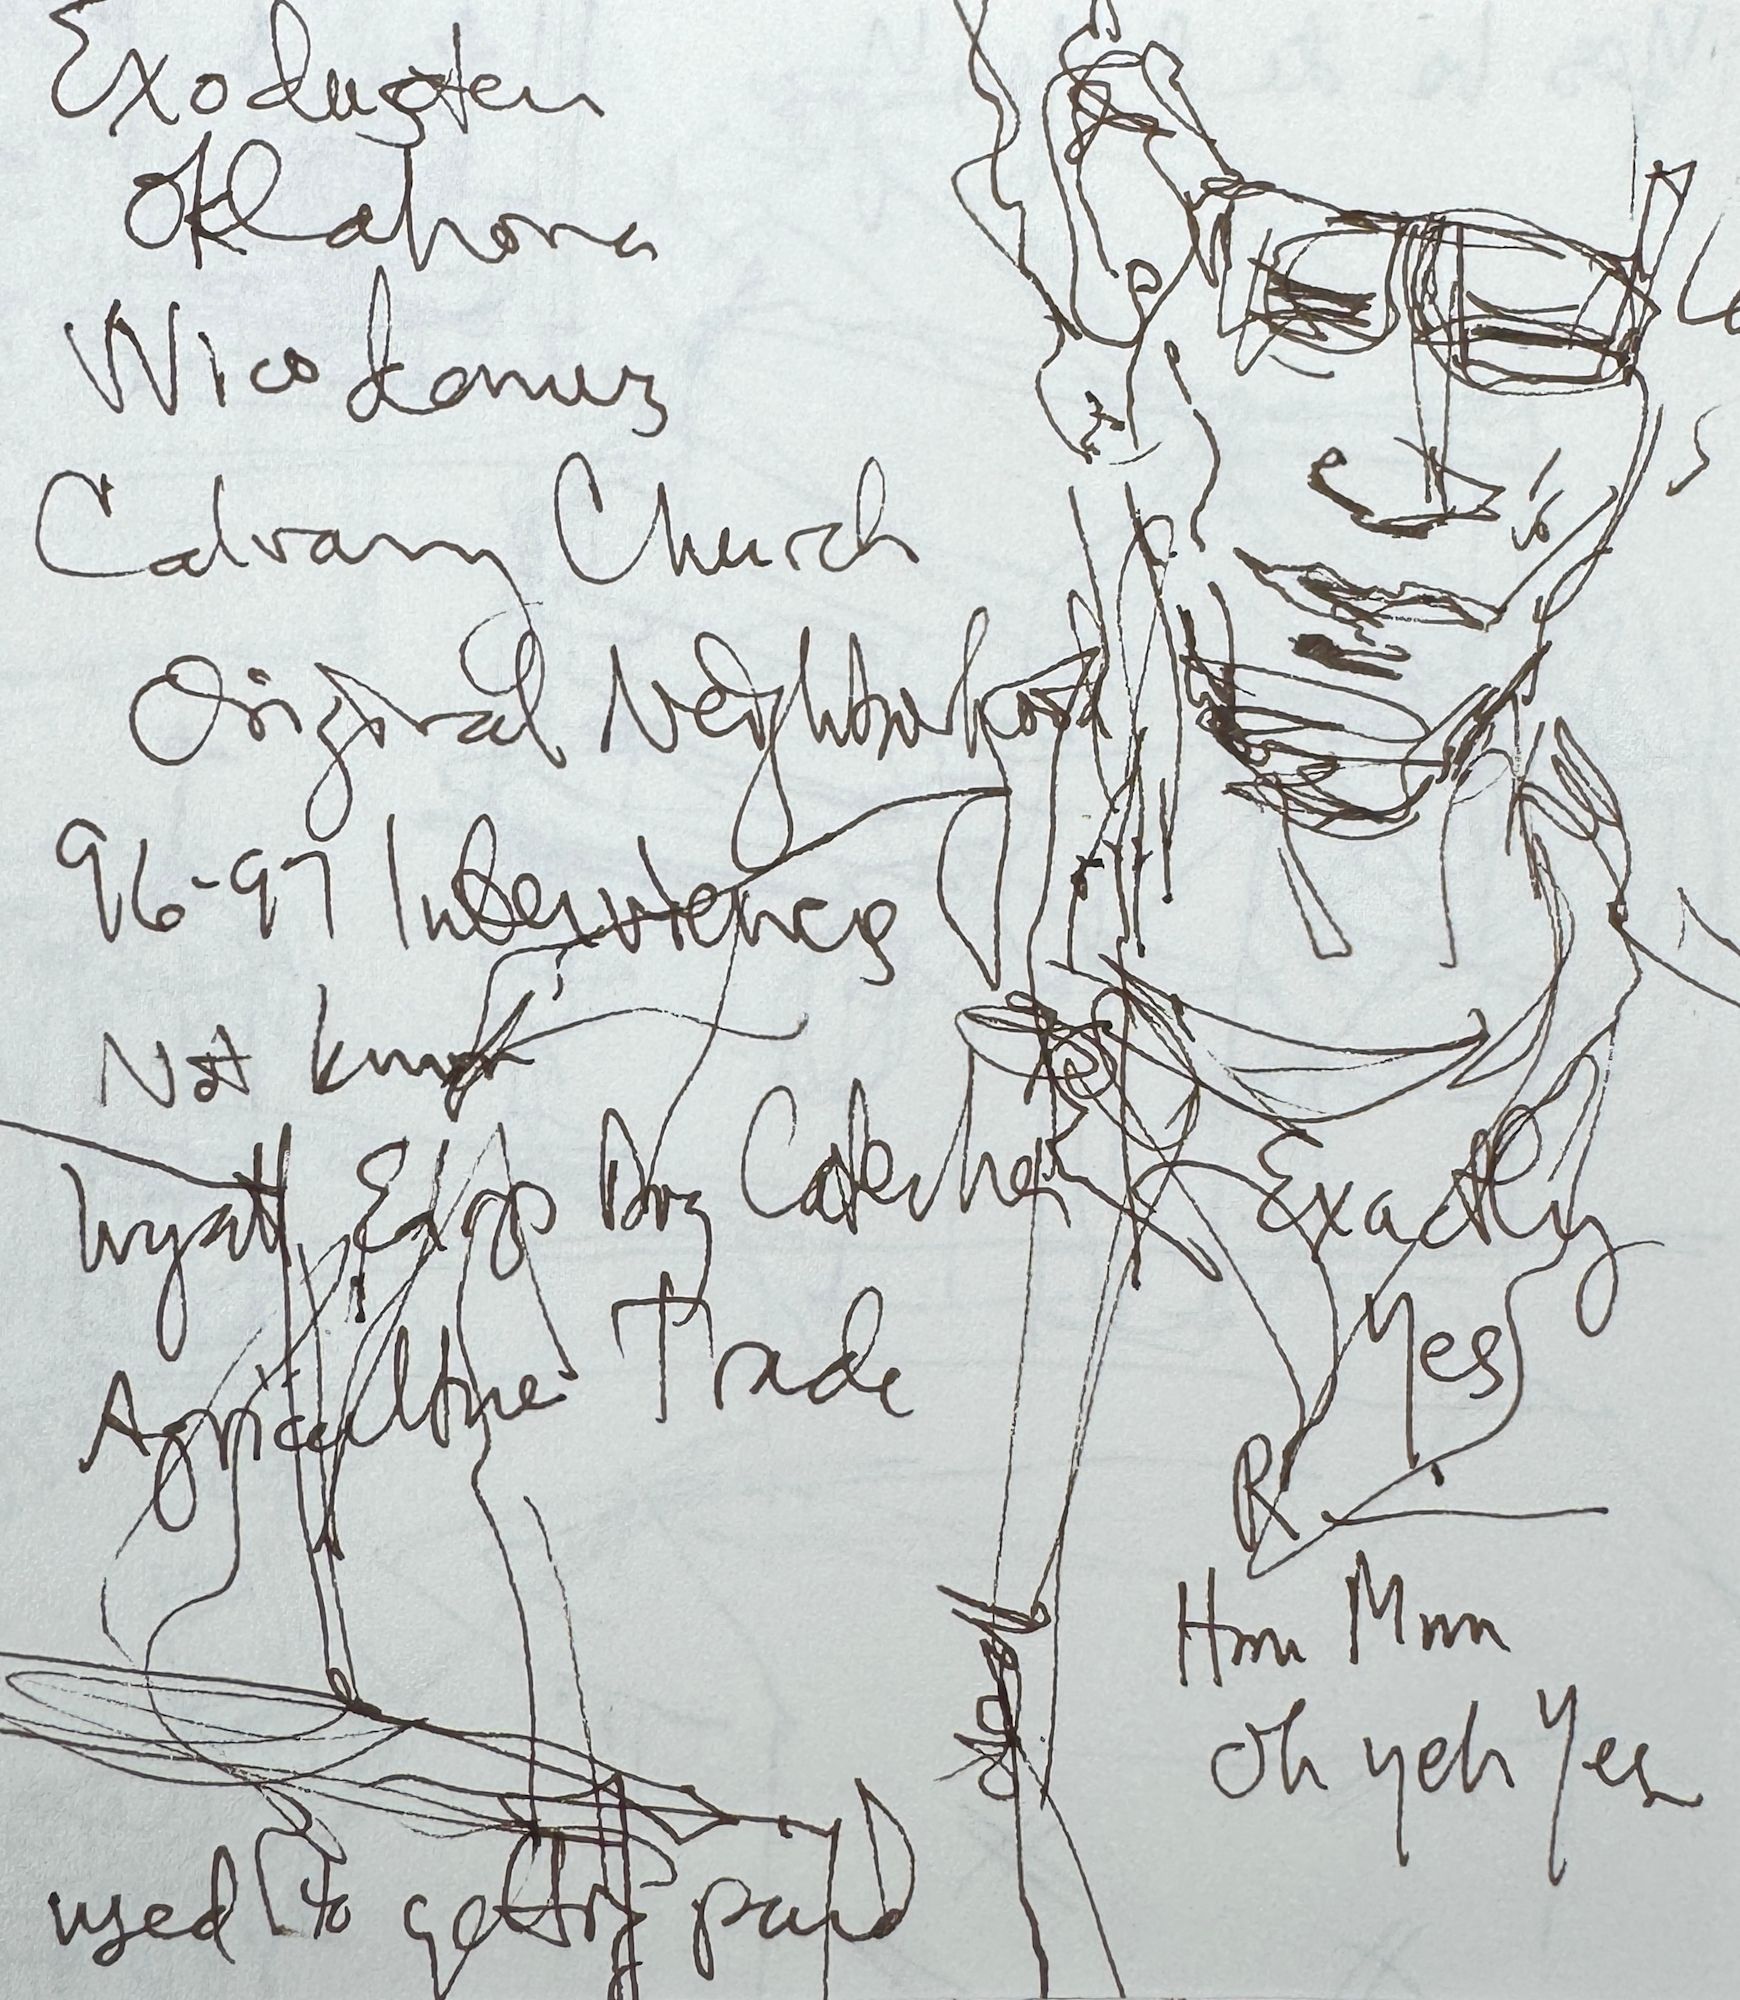 Exoduster
Oklahoma
Nicodemus
Calvary Church
Original Neighborhood
96-97
Not
Wyatt Earp Dog Catcher
Agriculture Trade
used to getting paid
Exactly
Yes
R
Hmm Mmm
Oh yeh Yes